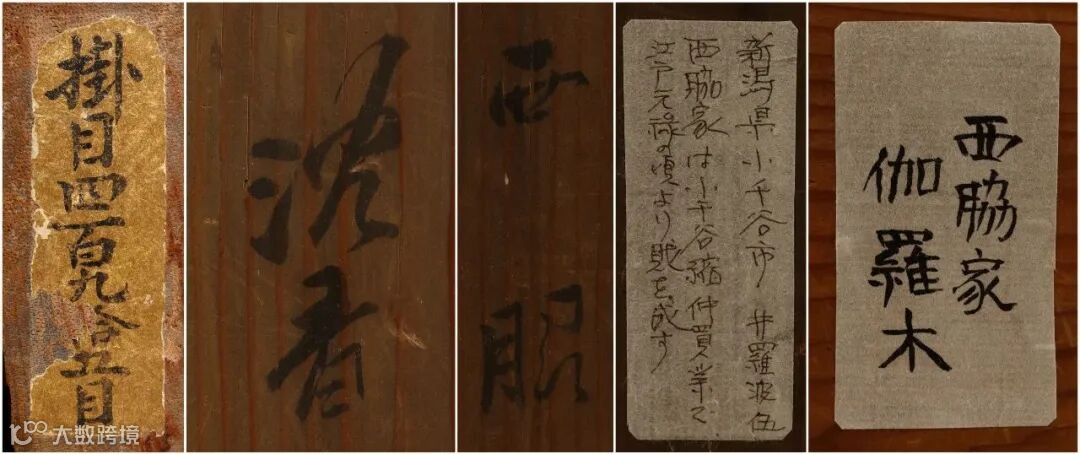 掛目四百九拾五目
沈香
西脇
新潟県小千谷市 井羅波伍
西脇家は小千谷縮仲買業で
江戸元禄の頃より財を成す
西脇家
伽羅木
大数跨境